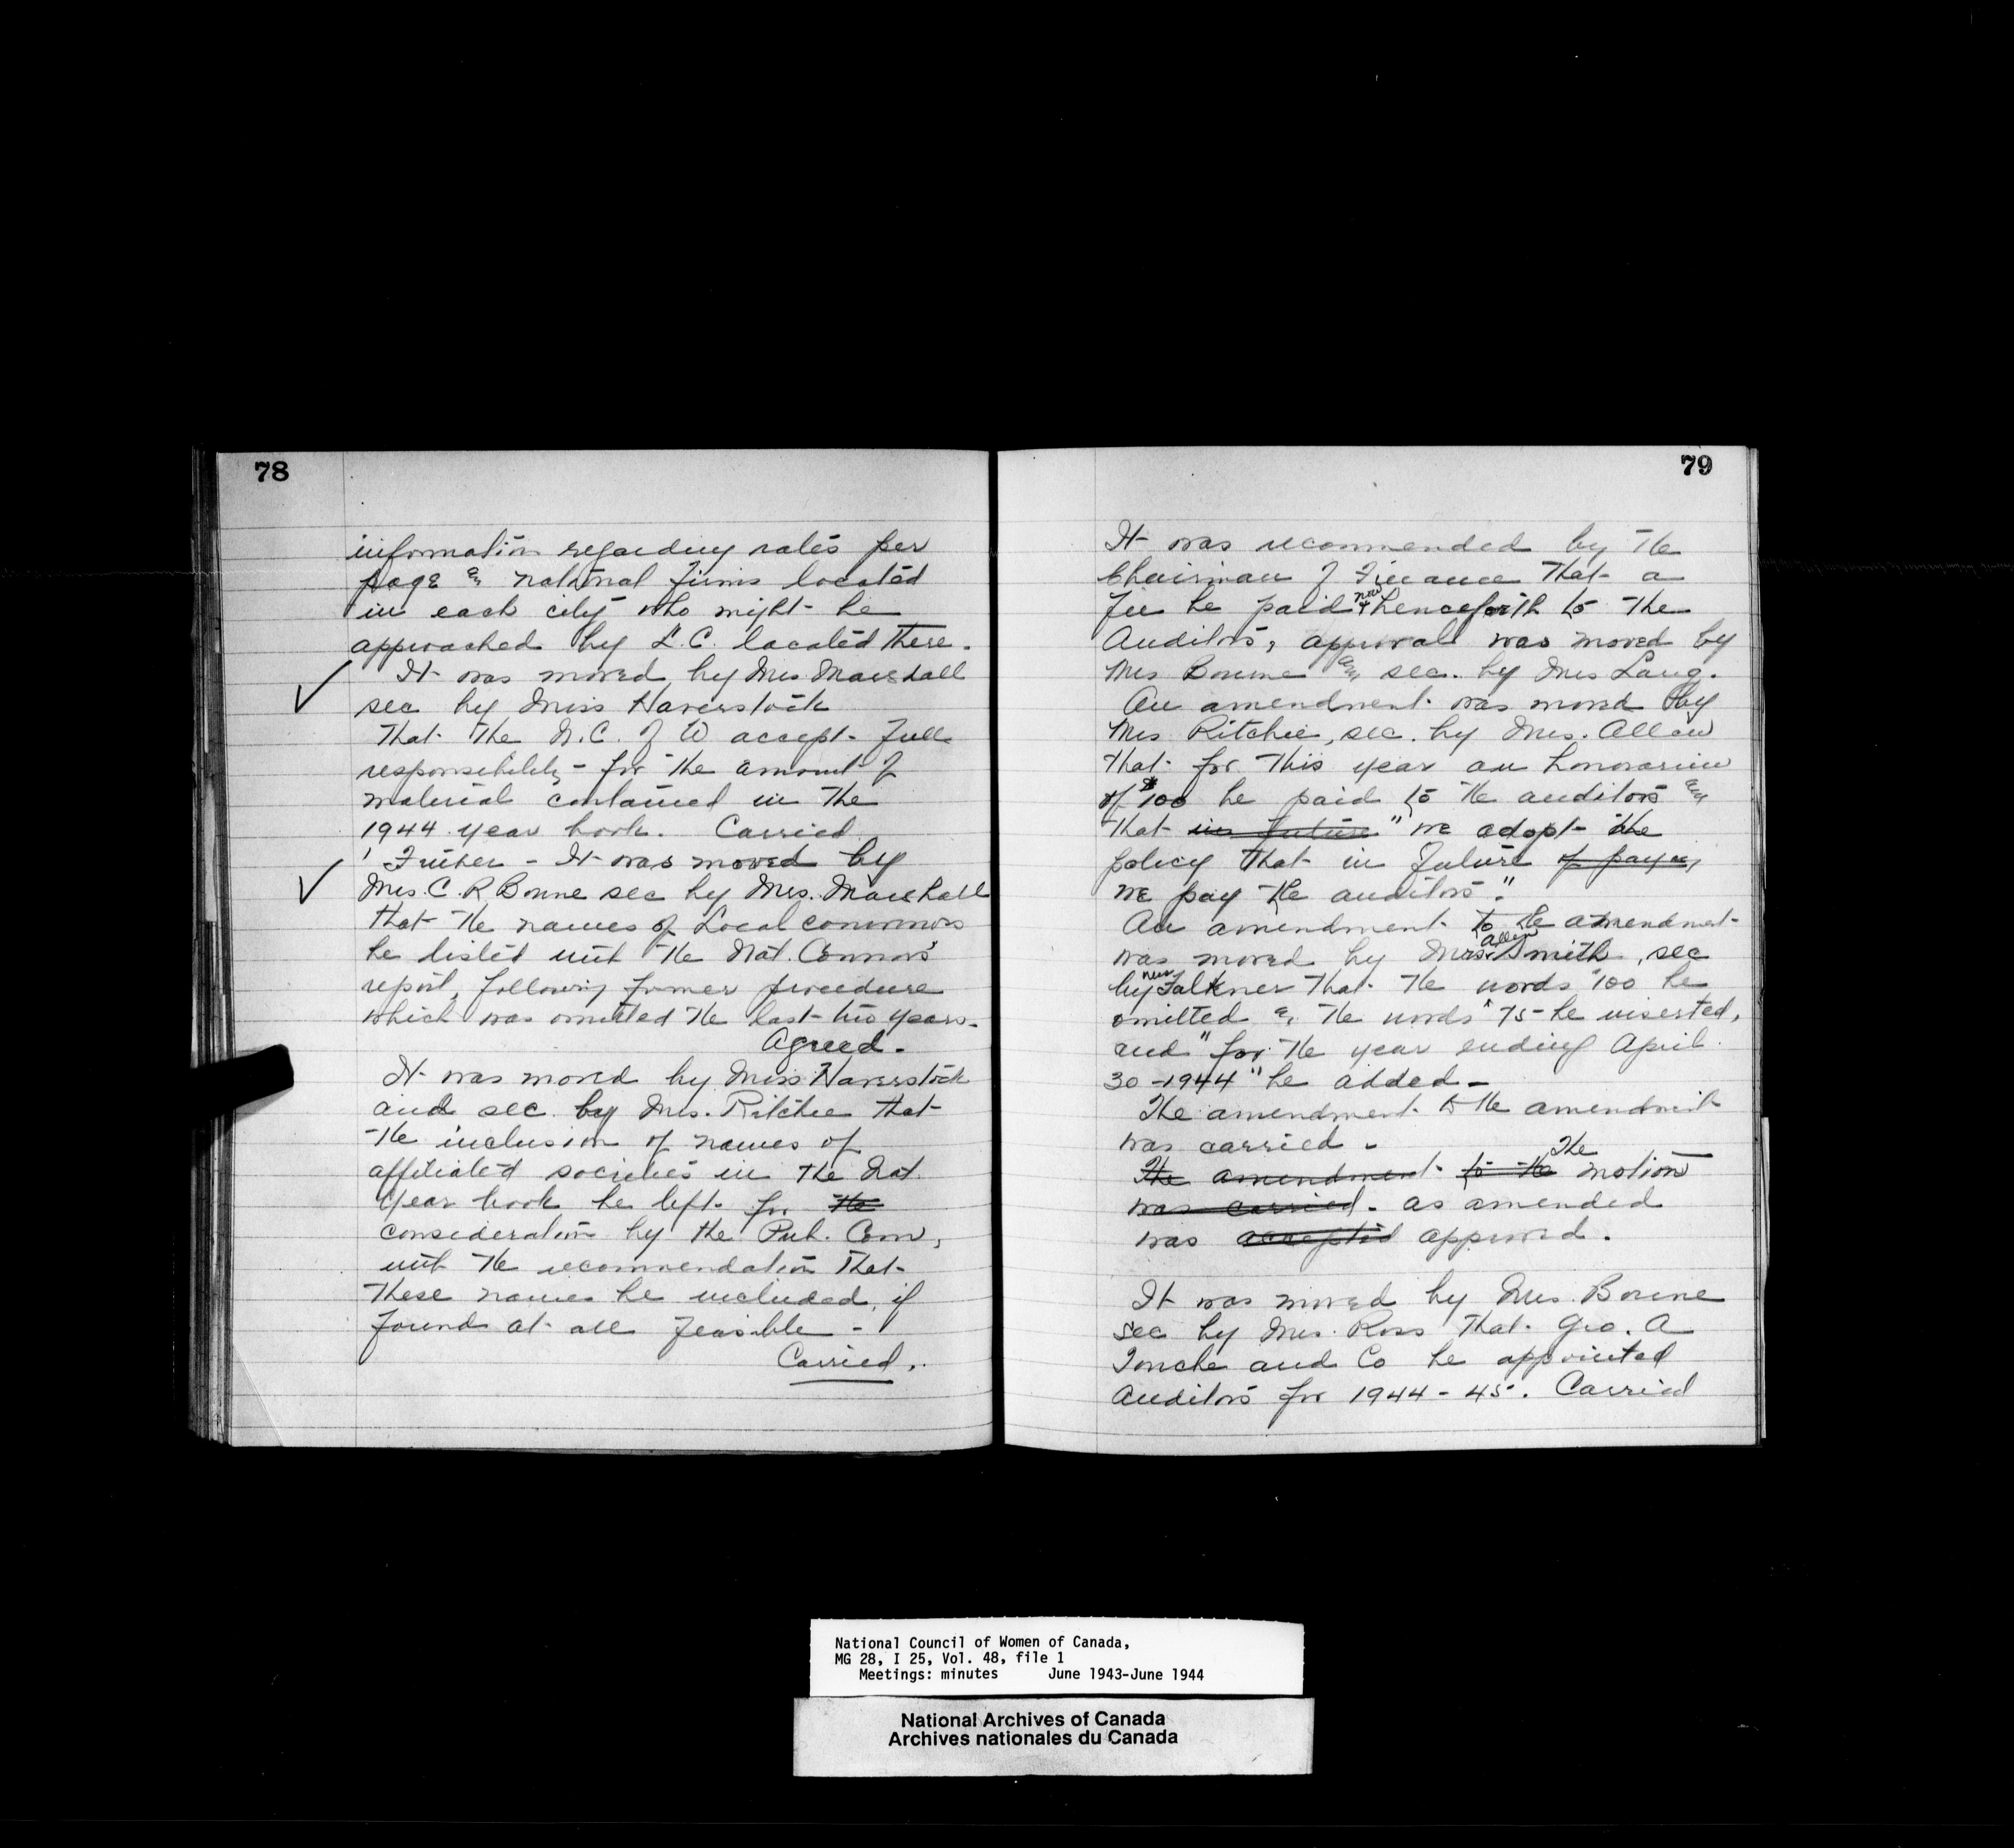 78
information regarding rates per
page & national firms located
in each city who might be
approached by L.C. located there.
It was moved by Mrs Marshall
sec by Miss Haverstock
That the N.C. of W accept full
responsibility for the amount of
material contained in the
1944 year book. Carried
Further - It was moved by
Mrs. C. R. Bonne sec by Mrs. Marshall
that the names of Local convenors
be listed with the Nat. Connors'
report, following former procedure
which was omitted the last two years.
Agreed.
It was moved by Miss Haverstock
and sec by Mrs. Ritchie that
the inclusion of names of
affiliated societies in the Nat.
Year book be left for the
consideration by the Pub. Com,
with the recommendation that
these names be included, if
found at all feasible -
Carried.
79
It was recommended by the
Chairman of Finance that a
fee be paid now & henceforth to the
Auditors, approval was moved by
Mrs Bonne & sec. by Mrs Lang.
An amendment was moved by
Mrs Ritchie, sec. by Mrs. Allan
that for this year an honorarium
of $100 be paid to the auditors &
that in future "we adopt the
policy that in future of paying
we pay the auditors."
An amendment to the amendment
was moved by Mrs. Allen Smith, sec
by Mrs Falkner that the words $100 be
omitted & the words $75 - be inserted,
and "for the year ending April
30 - 1944" be added -
The amendment to the amendment
was carried -
The amendment to the The motion
was carried - as amended
was accepted approved.
It was moved by Mrs. Bonne
sec by Mrs. Ross that Geo. A
Touche and Co be appointed
Auditors for 1944 - 45. Carried
National Council of Women of Canada,
MG 28, I 25, Vol. 48, file 1
Meetings: minutes June 1943-June 1944
National Archives of Canada
Archives nationales du Canada